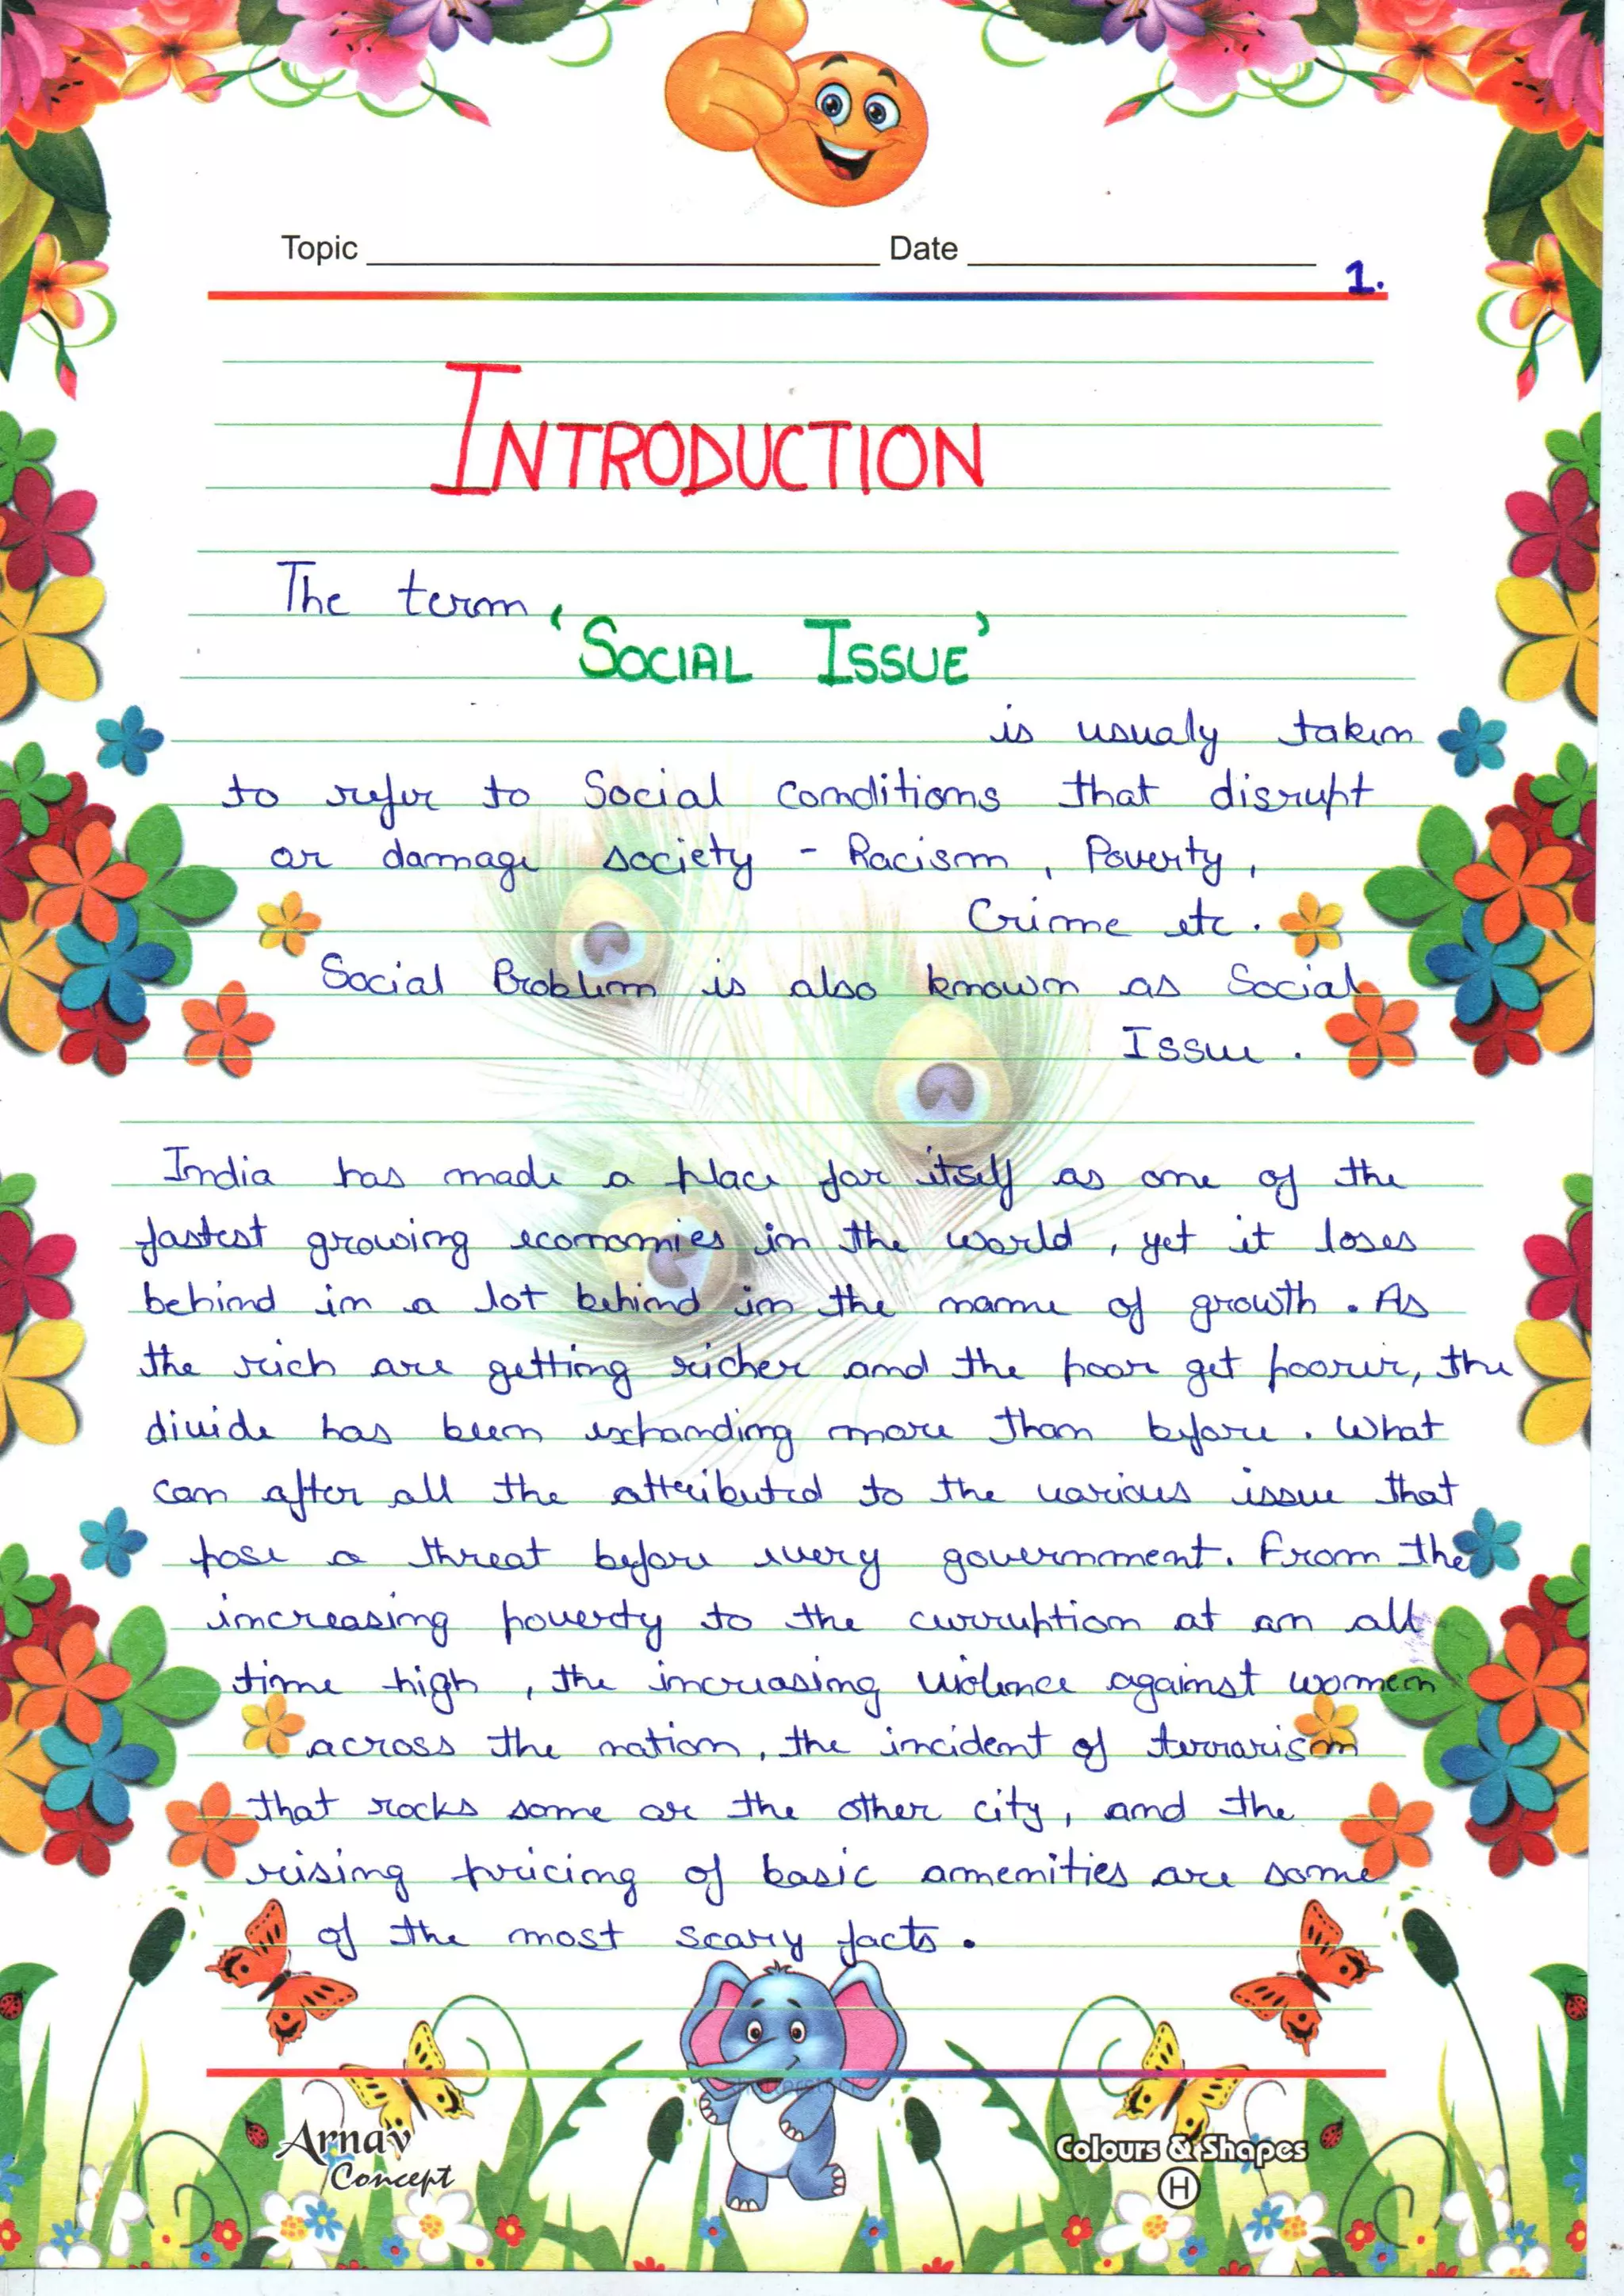 Topic Date
1.
INTRODUCTION
The term
'SOCIAL ISSUE'
is usualy taken
to refer to Social conditions that disrupt
or damage society - Racism, Poverty,
Crime etc.
Social Problem is also known as Social
Issue.
India has made a place for itself as one of the
fastest growing economies in the world, yet it loses
behind in a lot behind in the name of growth. As
the rich are getting richer and the poor get poorer, the
divide has been expanding more than before. What
can after all the attributed to the various issue that
pose a threat before every government. From the
increasing poverty to the curruption at an all
time high, the increasing violence against women
across the nation, the incident of terrorism
that rocks some or the other city, and the
rising pricing of basic amenities are some
of the most scary facts.
shutterstock
Arnav
Concept
Colours & Shapes
H